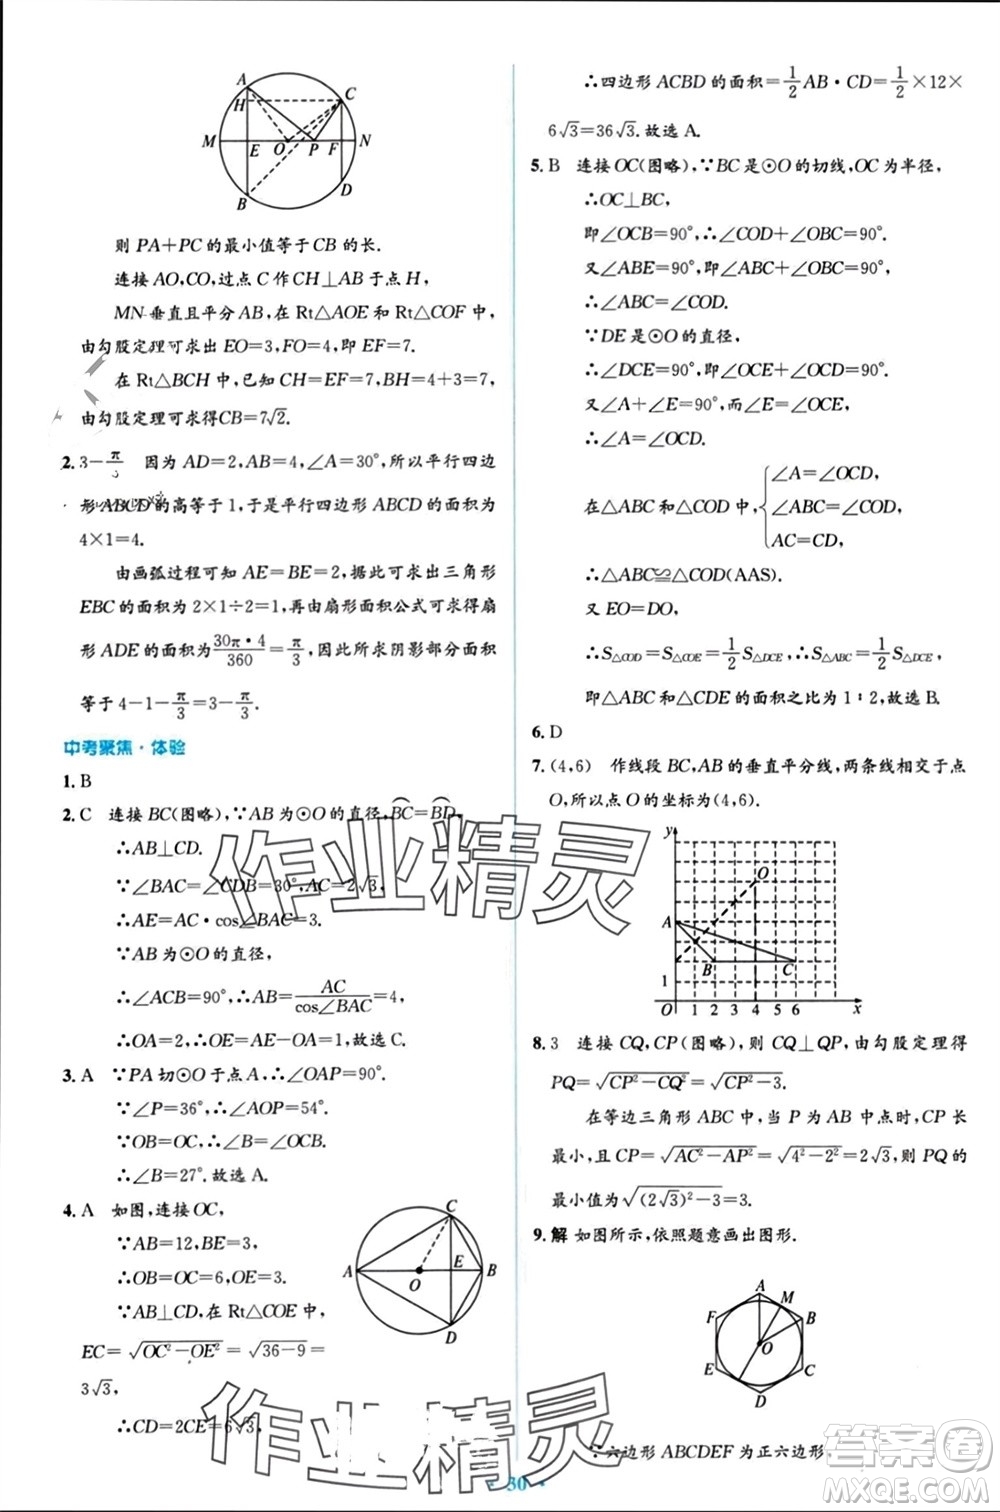 A
H
C
M
E
O
P
F
N
B
D
则 PA+PC 的最小值等于 CB 的长.
连接 AO,CO,过点 C 作 CH⊥AB 于点 H,
MN 垂直且平分 AB,在 Rt△AOE 和 Rt△COF 中,
由勾股定理可求出 EO=3,FO=4,即 EF=7.
在 Rt△BCH 中,已知 CH=EF=7,BH=4+3=7,
由勾股定理可求得CB=7√2.
2. 3-π/3 因为 AD=2,AB=4,∠A=30°,所以平行四边
形 ABCD 的高等于 1,于是平行四边形 ABCD 的面积为
4×1=4.
由画弧过程可知 AE=BE=2,据此可求出三角形
EBC 的面积为 2×1÷2=1,再由扇形面积公式可求得扇
形 ADE 的面积为30π·4/360=π/3,因此所求阴影部分面积
等于 4-1-π/3=3-π/3.
中考聚焦·体验
1. B
2. C 连接 BC(图略),∵AB 为⊙O 的直径,BC=BD,
∴AB⊥CD.
∵∠BAC=∠CDB=30°,AC=2√3,
∴AE=AC·cos∠BAC=3.
∵AB 为⊙O 的直径,
∴∠ACB=90°,∴AB=AC/cos∠BAC=4,
∴OA=2,∴OE=AE-OA=1,故选 C.
3. A ∵PA 切⊙O 于点 A,∴∠OAP=90°.
∵∠P=36°,∴∠AOP=54°.
∵OB=OC,∴∠B=∠OCB.
∴∠B=27°.故选 A.
4. A 如图,连接 OC,
∵AB=12,BE=3,
∴OB=OC=6,OE=3.
∵AB⊥CD,在 Rt△COE 中,
EC=√(OC²-OE²)=√(36-9)=
3√3,
∴CD=2CE=6√3,
C
A
O
E
B
D
∴四边形 ACBD 的面积=1/2 AB·CD=1/2×12×
6√3=36√3.故选 A.
5. B 连接 OC(图略),∵BC 是⊙O 的切线,OC 为半径,
∴OC⊥BC,
即∠OCB=90°,∴∠COD+∠OBC=90°.
又∠ABE=90°,即∠ABC+∠OBC=90°,
∴∠ABC=∠COD.
∵DE 是⊙O 的直径,
∴∠DCE=90°,即∠OCE+∠OCD=90°.
又∠A+∠E=90°,而∠E=∠OCE,
∴∠A=∠OCD.
在△ABC 和△COD 中,
∠A=∠OCD,
∠ABC=∠COD,
AC=CD,
∴△ABC≌△COD(AAS).
又 EO=DO,
∴S△COD=S△COE=1/2 S△DCE,∴S△ABC=1/2 S△DCE,
即△ABC 和△CDE 的面积之比为 1∶2,故选 B.
6. D
7. (4,6) 作线段 BC,AB 的垂直平分线,两条线相交于点
O,所以点 O 的坐标为(4,6).
y
O
A
B
C
1
O 1 2 3 4 5 6 x
8. 3 连接 CQ,CP(图略),则 CQ⊥QP,由勾股定理得
PQ=√(CP²-CQ²)=√(CP²-3).
在等边三角形 ABC 中,当 P 为 AB 中点时,CP 长
最小,且 CP=√(AC²-AP²)=√(4²-2²)=2√3,故 PQ 的
最小值为√((2√3)²-3)=3.
9. 解 如图所示,依照题意画出图形.
A
M
F
B
O
E
C
D
∵六边形 ABCDEF 为正六边形,
30
作业精灵
作业精灵
答案圈
MXQE.COM